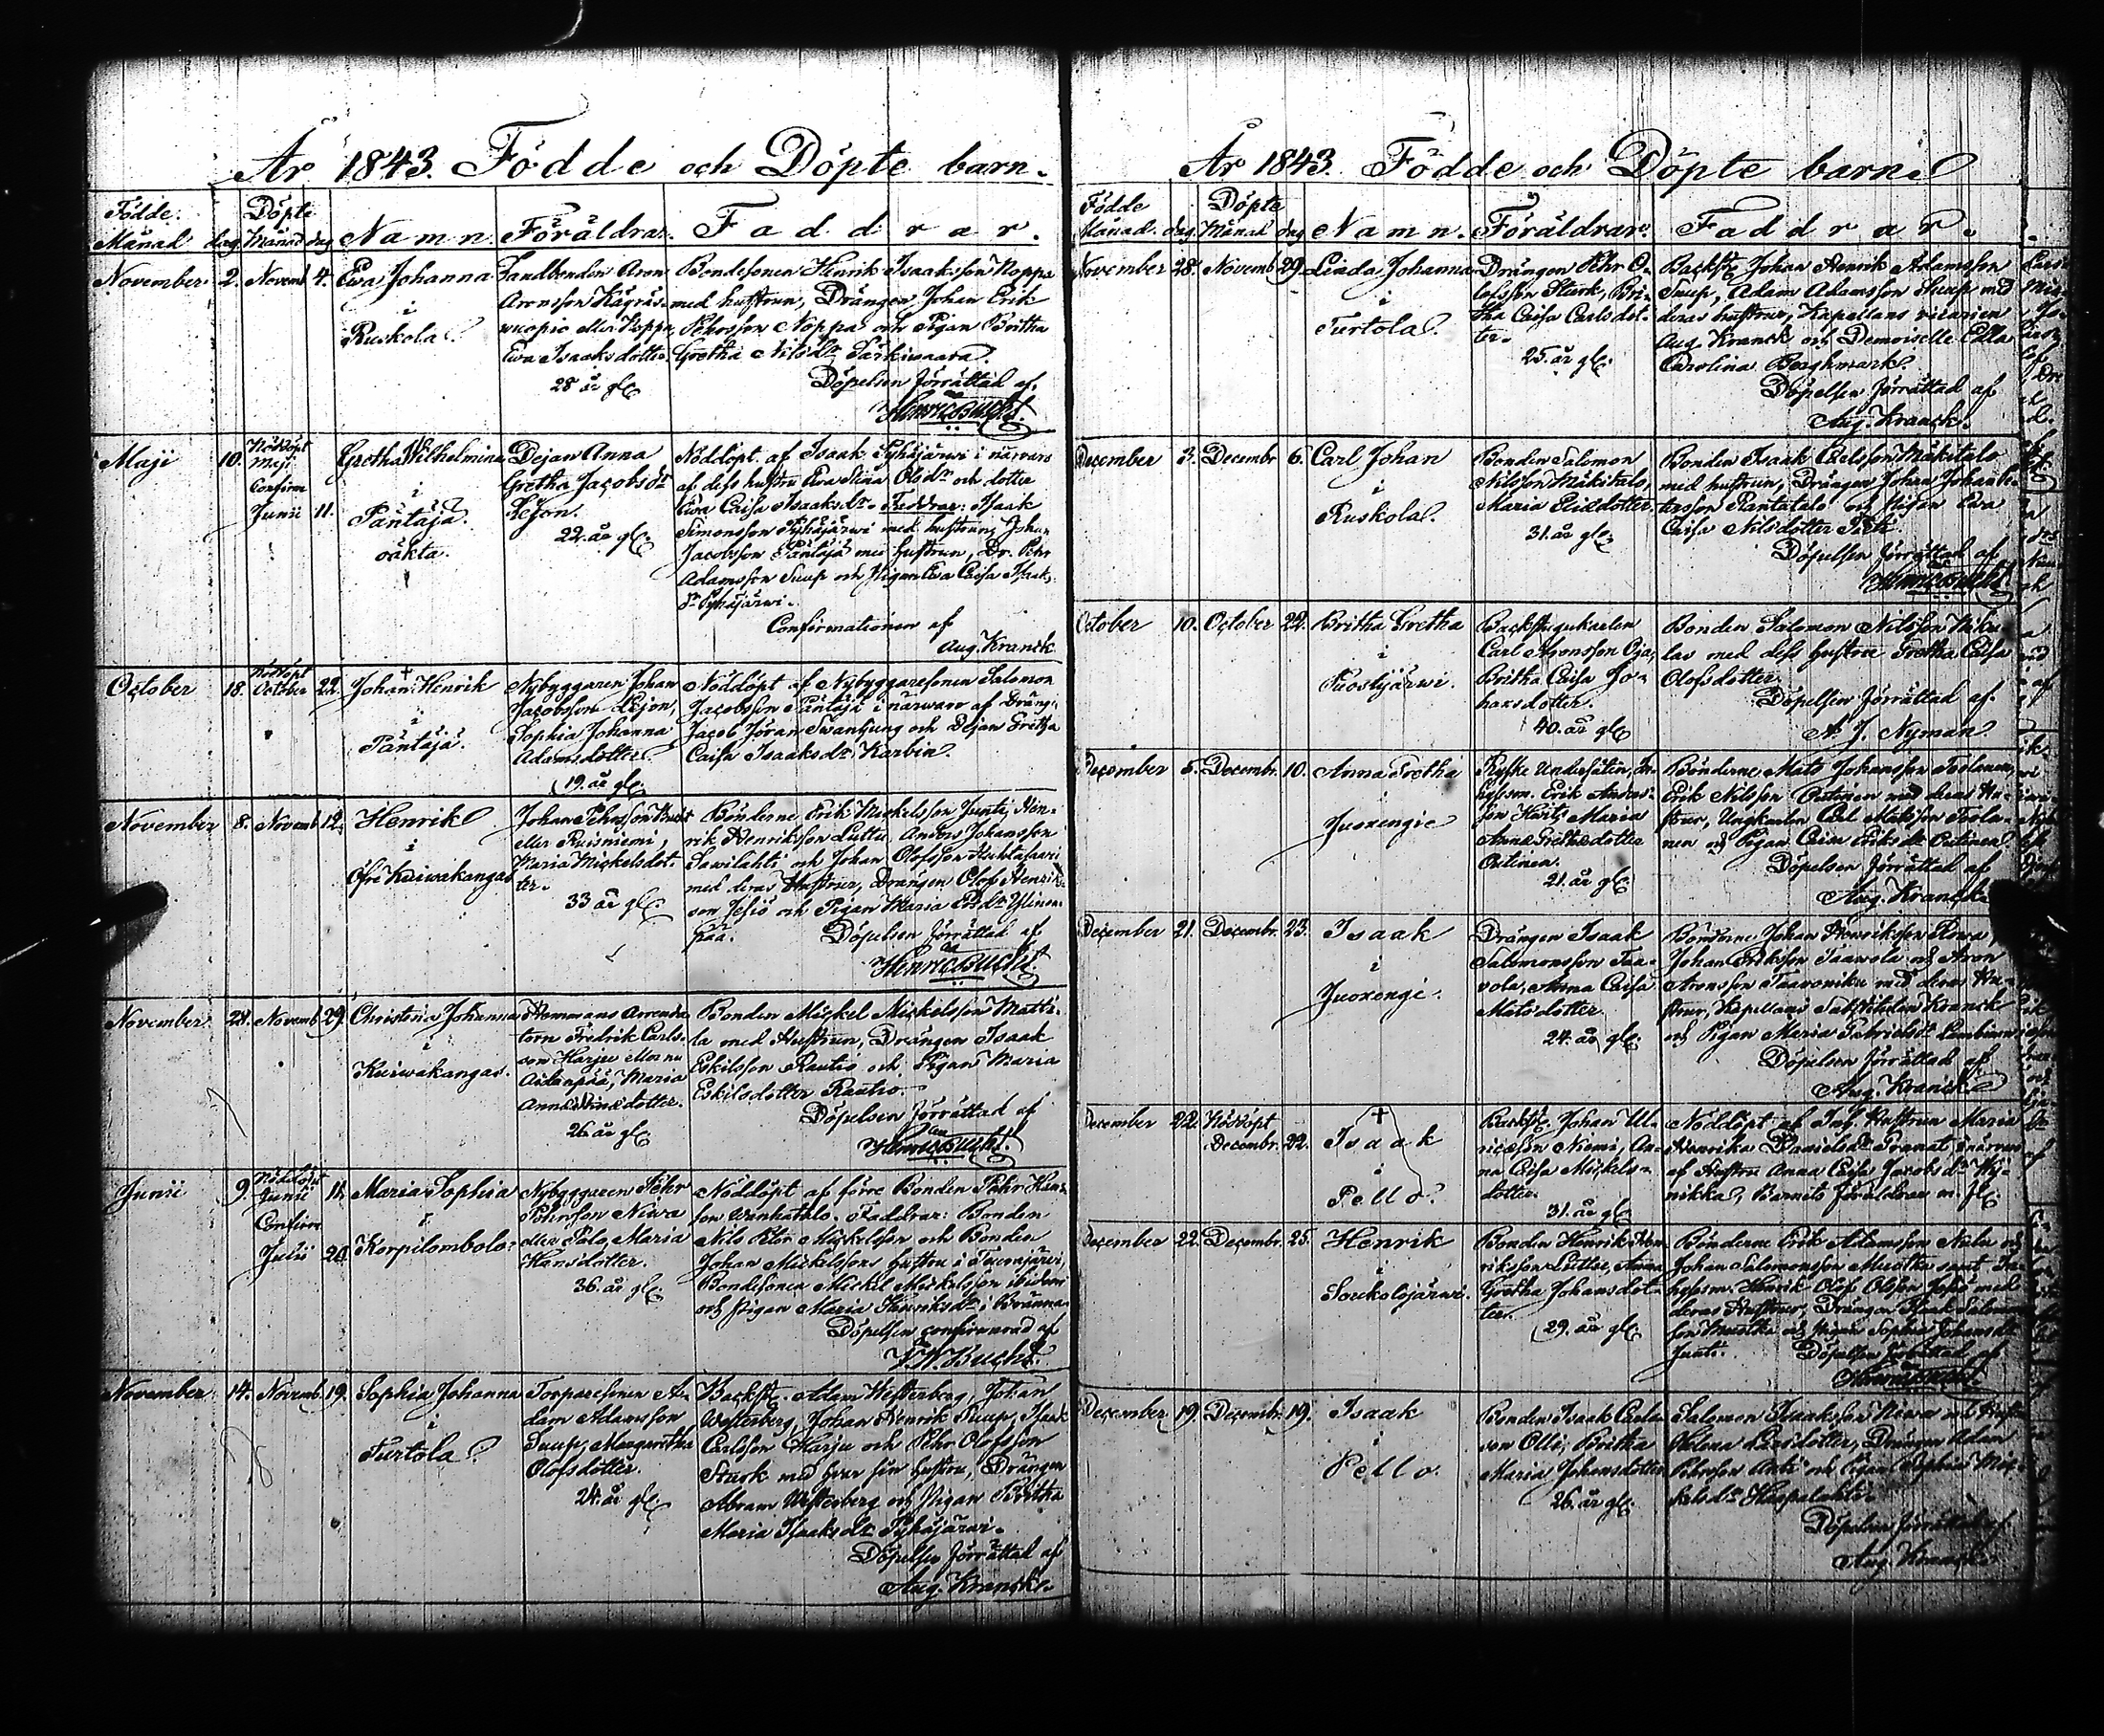 År 1843. Födde och Döpte barn.
Födde. Döpte
Månad dag Månad dag Namn. Föräldrar. Faddrar.
November 2. Novemb 4. Ewa Johanna
i
Ruskola.
Landbonden Aron
Aronsson
eller Noppa,
Ewa Isaaks dotter
28 år gl.
Bondesonen Henrik Isaaksson Noppa
med hustrun, Drängen Johan Erik
Pehrsson Noppa och Pigan Britha
Gretha Nilsdr Särkiwaara.
Döpelsen förrättad af
Henric Bucht.
Maji 10. Nöddöpt
Maji
Confirm
Junii 11.
Gretha Wilhelmina
i
Päntäjä.
oäkta.
Dejan Anna
Gretha Jacobsdr
Lejon.
22. år gl.
Nöddöpt af Isaak Pyhäjärwi i närwaro
af dess hustru Ewa Stina Olsdr och dotter
Ewa Caisa Isaaksdr. Faddrar: Isaak
Simonsson Pyhäjärwi med hustrun, Johan
Jacobsson Päntäjä med hustrun, Dr. Pehr
Adamsson Suup och Pigan Ewa Caisa Isaks
dr Pyhäjärwi.
Confirmationen af
Aug. Kranck
October 18. Nöddöpt
October 22.
Johan Henrik
i
Päntäjä.
Nybyggaren Johan
Jacobsson Lejon,
Sophia Johanna
Adamsdotter
19. år gl.
Nöddöpt af Nybyggaresonen Salomon
Jacobsson Päntäjä i närwaro af Dräng.
Jacob Jöran Swanljung och Dejan Gretha
Caisa Isaaksdr Karbin.
November 8. Novemb 12.
Henrik
i
Öfre Kuiwakangas
Johan Pehrsson
eller Ruisniemi,
Maria Mickelsdot-
ter.
33 år gl.
Bönderne Erik Mickelsson Junti, Hen-
rik Henriksson Luttu, Anders Johansson
Sawilahti och Johan Olofsson
med deras Hustrur, Drängen Olof Henriks-
son Jesiö och Pigan Maria Ersdr Ylinen-
pää. Döpelsen förrättad af
Henric Bucht.
November 28. Novemb 29.
Christina Johanna
i
Kuiwakangas.
Hemmans Arrenda-
torn Fredrik Carls-
son Harju eller nu
Aidanpää, Maria
Anna dotter.
26. år gl.
Bonden Mickel Mickelsson Matti-
la med Hustrun, Drängen Isaak
Eskilsson Rautio och Pigan Maria
Eskilsdotter Rautio.
Döpelsen förrättad af
Henric Bucht.
Junii 9. Nöddöpt
Junii 11.
Confirm
Julii 20.
Maria Sophia
i
Korpilombolo.
Nybyggaren Pehr
Pehrsson Niwa
eller Palo, Maria
Hansdotter.
36. år gl.
Nöddöpt af förre Bonden Pehr Hans-
son Wanhatalo. Faddrar: Bonden
Nils Petter Mickelsson och Bonden
Johan Mickelssons hustru i
Bondesonen Mickel Mickelsson ibidem
och pigan Maria Henriksdr i Bränna.
Döpelsen confirmerad af
Bucht.
November 14. Novemb. 19.
Sophia Johanna
i
Turtola
Torparesonen A-
dam Adamsson
Suup, Margaretha
Olofsdotter.
24. år gl.
Backst. Adam Westerberg, Johan
Westerberg, Johan Henrik Suup, Isaak
Carlsson Harju och Pehr Olofsson
Stark med hwar sin hustru, Drängen
Abram Westerberg och Pigan Britha
Maria Isaaksdr Pyhäjärwi.
Döpelsen förrättad af
Aug. Kranck.
År 1843. Födde och Döpte barn
Födde Döpte
Månad. dag. Månad dag Namn. Föräldrar. Faddrar.
November 28. Novemb 29.
Linda Johanna
i
Turtola.
Drängen Pehr O-
lofsson Stark, Bri-
tha Caisa Carlsdot-
ter.
25. år gl.
Backst. Johan Henrik Adamsson
Suup, Adam Adamsson Suup med
deras hustrur, Kapellans vicarien
Aug. Kranck och Demoiselle Edla
Carolina Berghmark.
Döpelsen förrättad af
Aug. Kranck.
December 3. Decembr 6.
Carl Johan
i
Ruskola.
Bonden Salomon
Nilsson Mäkitalo,
Maria Elisdotter
31. år gl.
Bonden Isaak Mäkitalo
med hustrun, Drängen Johan Johan Pe-
tersson Rantatalo och Pigan Ewa
Caisa Nilsdotter
Döpelsen förrättad af
Henric Bucht
October 10. October 22.
Britha Gretha
i
Puostijärwi.
Backstugukarlen
Carl Oja,
Britha Caisa Jo-
hansdotter.
40. år gl.
Bonden Salomon Nilsson
med dess hustru Gretha Caisa
Olofsdotter.
Döpelsen förrättad af
A. J. Nyman
December 5. Decembr. 10.
Anna Gretha
i
Juoxengie
Ryske Undersåten, In-
hysesm. Erik Anders-
son Maria
Anna Grethasdotter
Outinen.
21. år gl.
Bönderne Mats Johansson Toolanen,
Erik Nilsson Outinen med deras Hu-
strur, Ungkarlen Matsson Toola-
nen och Pigan Caisa Eriksdr Outinen
Döpelsen förrättad af
Aug. Kranck.
December 21. Decembr. 23.
Isaak
i
Juoxengi.
Drängen Isaak
Salomonsson Taa-
vola, Anna Caisa
Matsdotter
24. år gl.
Bönderne Johan Henriksson
Johan Eriksson Taawola och Aron
Aronsson Taavoniku med deras Hu-
strur, Kapellans Substituten Kranck
och Pigan Maria Gabrielsdr
Döpelsen förrättad af
Aug. Kranck
December 22. Nöddöpt
Decembr. 22.
Isaak
i
Pello.
Backst. Johan Ul-
ricasson Niemi, An-
na Caisa Mickels-
dotter.
31. år gl.
Nöddöpt af Ing. Hustrun Maria
Henrika Danielsdr Granat i närwaro
af Hustru Anna Caisa Jacobsdr
Barnets föräldrar m. fl.
December 22. Decembr. 25.
Henrik
i
Soukolojärwi.
Bonden Henrik Hen-
riksson Luttu, Anna
Gretha Johansdot-
ter.
29. år gl.
Bönderne Erik Adamsson och
Johan Salomonsson samt In-
hysesm. Henrik Olof Olsson Jesiö med
deras Hustrur, Drängen Isaak Salomons-
son och Pigan Sophia Johansdr
Junti. Döpelsen förrättad af
Henric Bucht
December 19. Decembr. 19.
Isaak
i
Pello.
Bonden Isaak Carls-
son Olli, Britha
Maria Johansdotter
26. år gl.
Salomon Isaaksson Niwa och Hustr.
Helena Larsdotter, Drängen Adam
Pehrsson Anti och Pigan Sophia Mic-
kelsdr
Döpelsen förrättad af
Aug. Kranck.